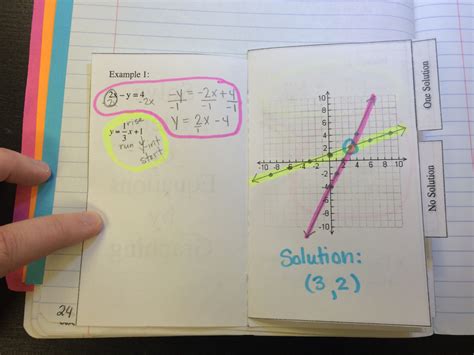 Example 1:
2x − y = 4
-2x -2x
-y = -2x + 4
-1 -1 -1
y = 2x - 4
1
y = 1/3 x + 1
rise
run y int
start
24
10
8
6
4
2
-10 -8 -6 -4 -2 2 4 6 8 10
-2
-4
-6
-8
-10
Solution:
(3,2)
One Solution
No Solution